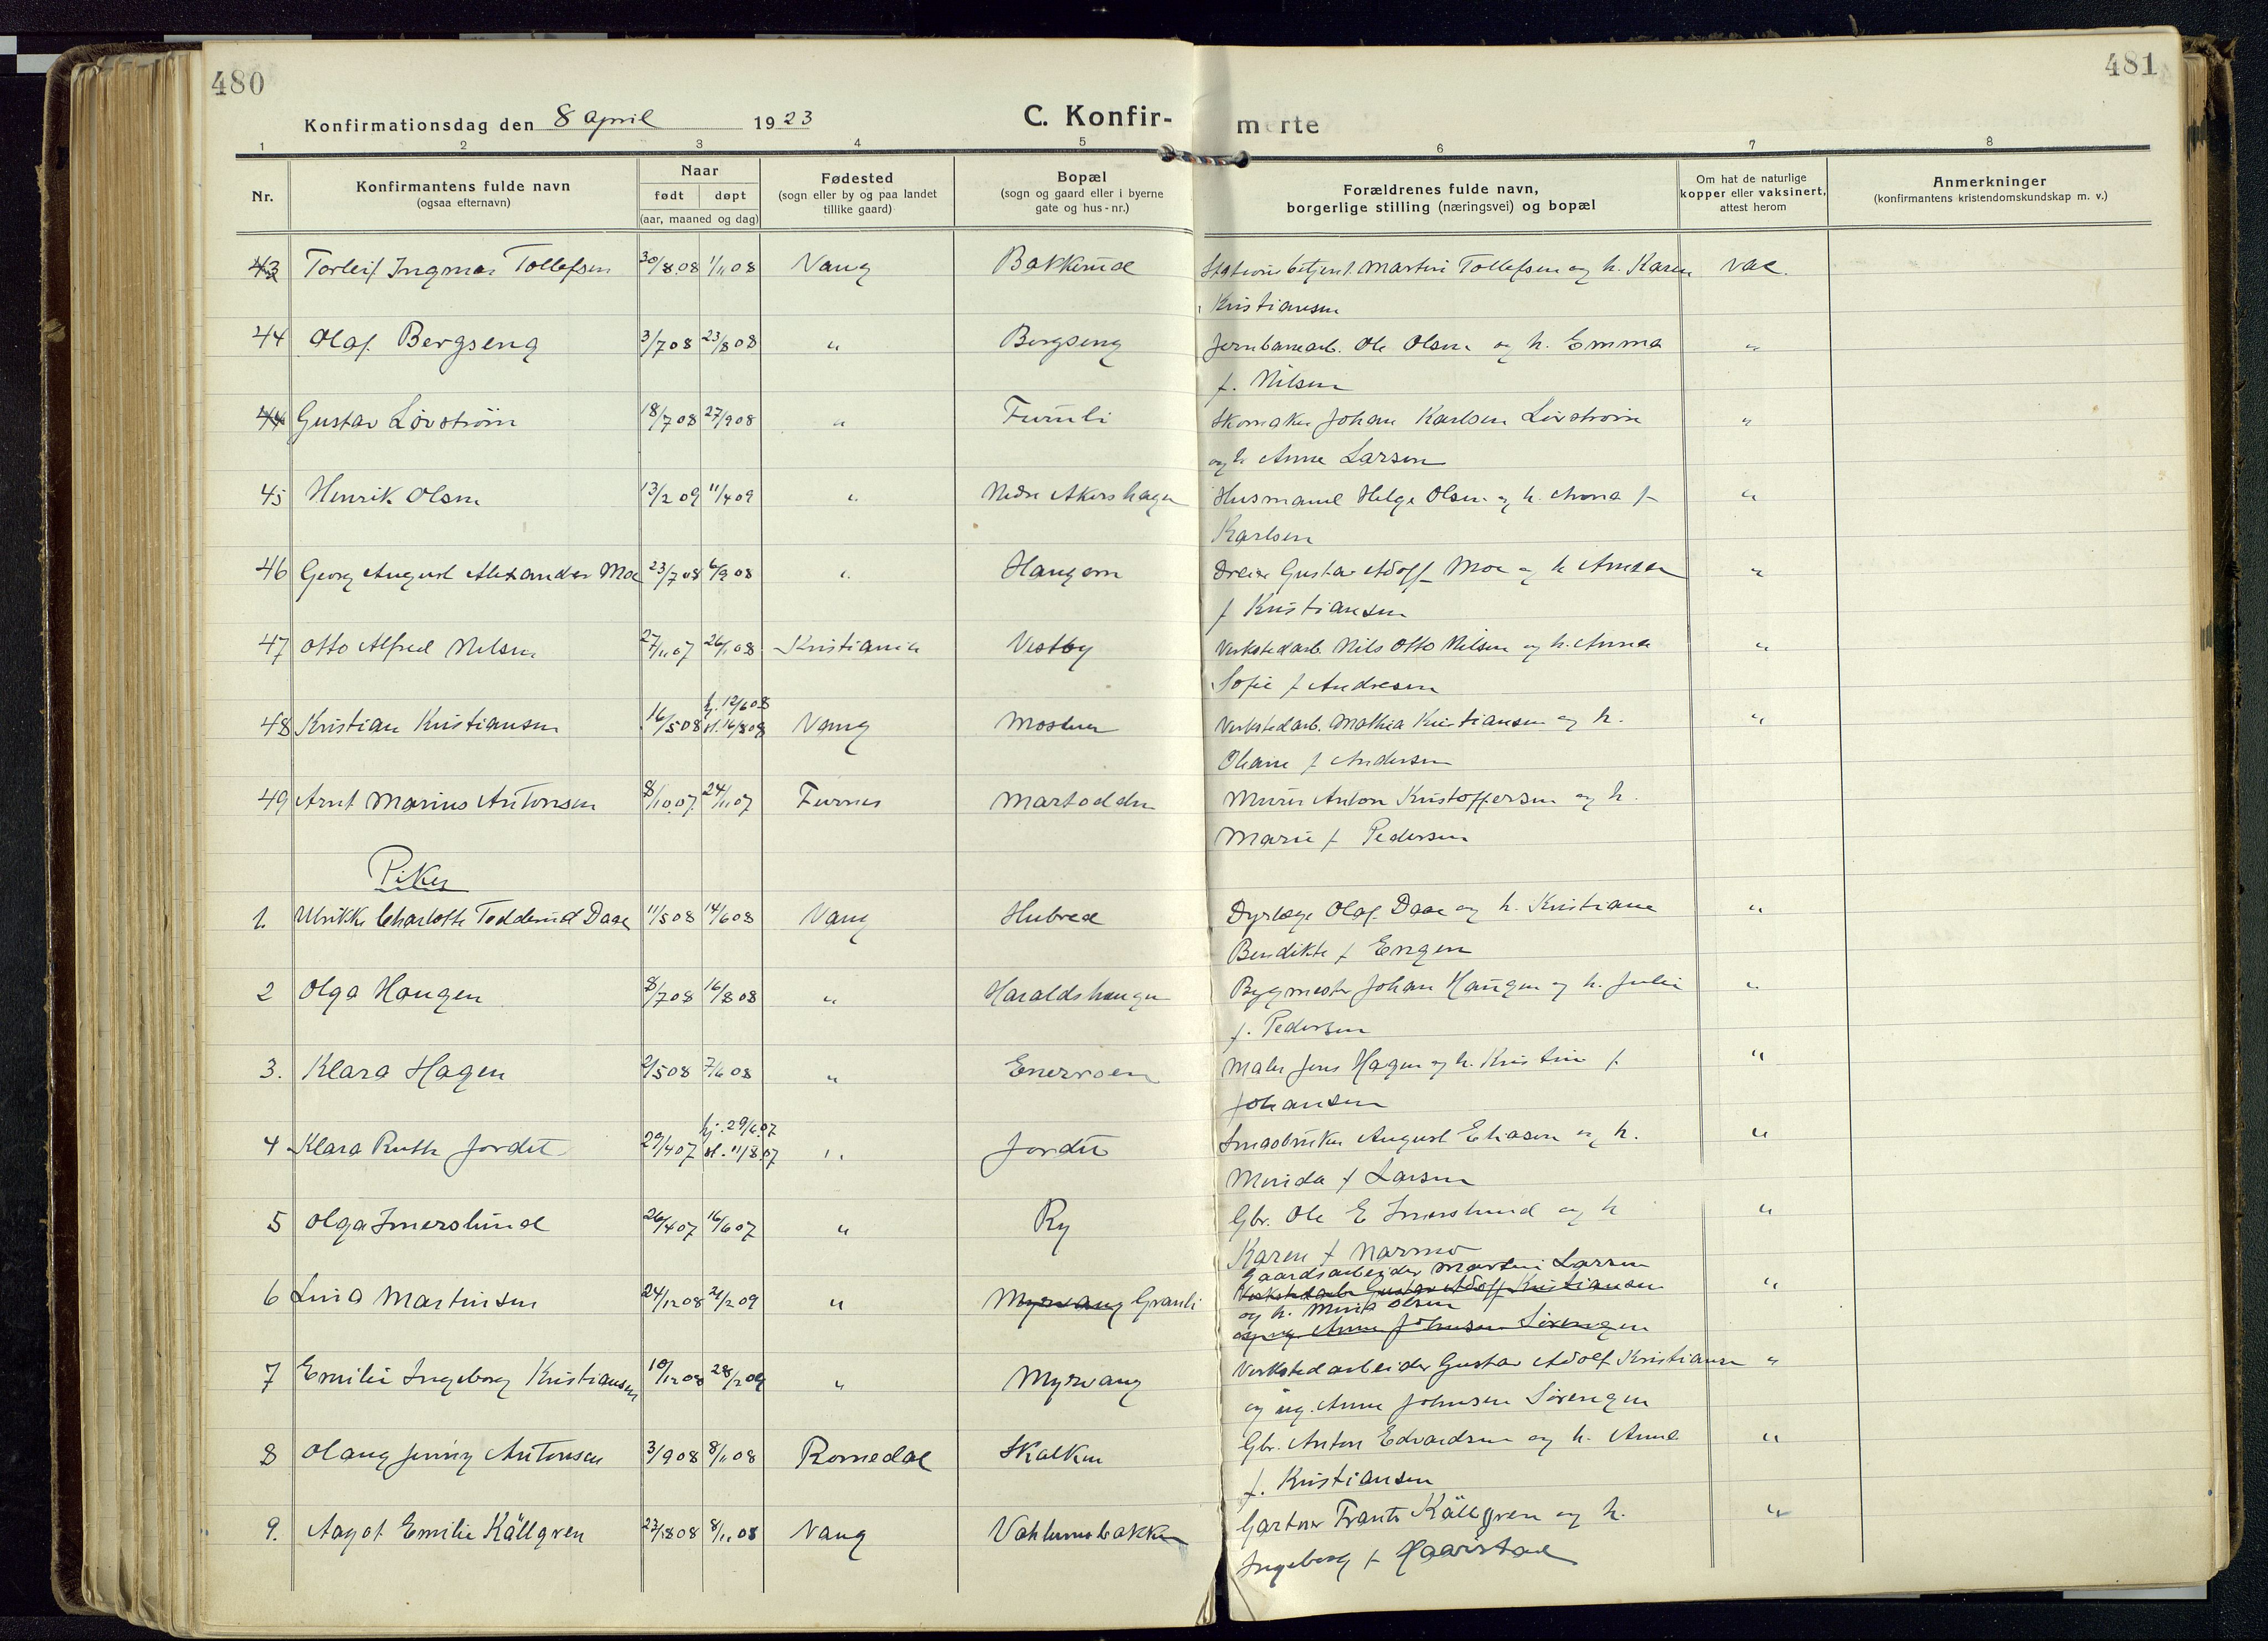 480
481
Konfirmationsdag den 8 april 1923
C. Konfir-
merte
1 2 3 4 5 6 7 8
Nr.
Konfirmantens fulde navn
(ogsaa efternavn)
Naar
født døpt
(aar, maaned og dag)
Fødested
(sogn eller by og paa landet
tillike gaard)
Bopæl
(sogn og gaard eller i byerne
gate og hus-nr.)
Forældrenes fulde navn,
borgerlige stilling (næringsvei) og bopæl
Om hat de naturlige
kopper eller vaksinert,
attest herom
Anmerkninger
(konfirmantens kristendomskundskap m. v.)
43 Torleif Ingmar Tollefsen 30/8.08 1/11 08 Vang Bakkerud Stationsbetjent Martin Tollefsen og h. Karen vac.
Kristiansen
44 Olaf Bergseng 3/7 08 23/8 08 " Bergseng Jernbanearb. Ole Olsen og h. Emma "
f. Nilsen
44 Gustav Lövström 18/7 08 27/9 08 " Furuli Skomaker Johan Karlsen Lövström "
og h Anne Larsen
45 Henrik Olsen 13/2 09 11/4 09 " Nedre Akershagen Husmand Helge Olsen og h. Anna f "
Karlsen
46 Georg August Alexander Moe 23/7 08 6/9 08 " Haugom Dreier Gustav Adolf Moe og h
f Kristiansen
47 Otto Alfred Nilsen 27/11 07 26/1 08 Kristiania Vestby Verkstedarb. Nils Otto Nilsen og h. Anna "
Sofie f Andresen
48 Kristian Kristiansen 16/5 08 hj. 12/6 08 Vang Verkstedarb. Mathia Kristiansen og h. "
Oleane f Andersen
49 Arnt Marius Antonsen 8/10.07. 24/11 07 Furnes Martodden Murer Anton Kristoffersen og h.
Marie f Pedersen
Piker
1. Ulrikke Charlotte Todderud Daae 11/5 08 14/6 08 Vang Hubred Dyrlæge Olaf Daae og h. Kristiane "
Bendikte f Engen
2 Olga Haugen 8/7 08 16/8 08 " Haraldshaugen Bygmester Johan Haugen og h. Julie "
f. Pedersen
3. Klara Hagen 2/5 08 7/6 08 " Enervoen Maler Jens Hagen og h. Kristine f. "
Johansen
4 Klara Ruth Jordet 29/4 07 hj. 29/6.07 st. 11/8.07 " Jordet Smaabruker August Eliasen og h. "
Minda f Larsen
5 Olga Imerslund 26/4 07 16/6 07 " Ry Gbr. Ole E Imerslund og h "
Karen f Narmo
6 Lina Martinsen 24/12 08 21/2 09 " Myrvang Granli Gaardsarbeider Martin Larsen "
Verkstedarb Gustav Adolf Kristiansen
og h. Olsen
og ug Anne Johnsen Sörengen
7 Emilie Ingeborg Kristiansen 10/12 08 28/2 09 " Myrvang Verkstedarbeider Gustav Adolf Kristiansen "
og ug. Anne Johnsen Sörengen
8 Olaug Jenny Antonsen 3/9 08 8/11 08 Romedal Skalken Gbr. Anton Edvardsen og h. Anne "
f. Kristiansen
9. Aagot Emilie Källgren 23/8 08 8/11 08 Vang Gartner Frants Källgren og h. "
Ingeborg f Haarstad